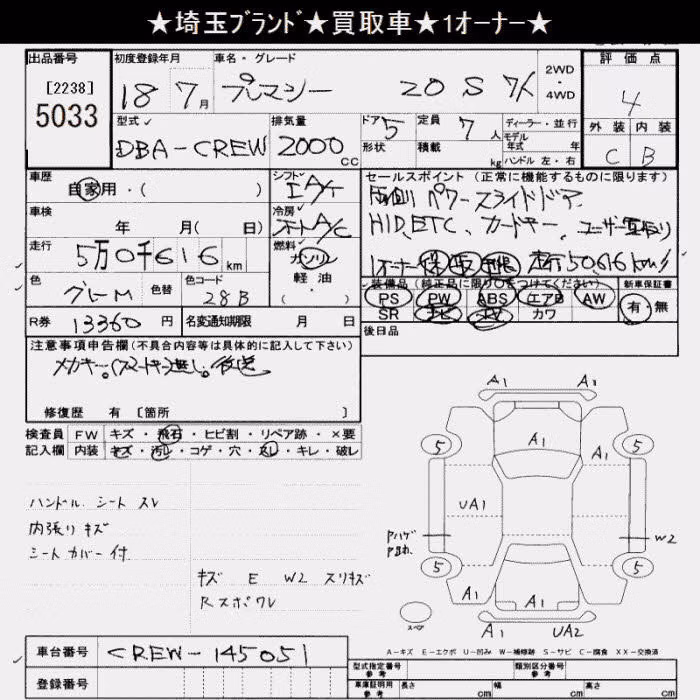 ★埼玉ブランド★買取車★1オーナー★
出品番号
[2238]
5033
初度登録年月
18 7月
車名・グレード
プレマシー 20S 7人
2WD
・
4WD
評価点
4
外装 内装
C B
型式
DBA-CREW
排気量
2000 cc
ドア 5
形状
定員 7人
積載 kg
ディーラー・並行
モデル
年式 年
ハンドル 左・右
車歴
自家用・( )
シフト
IAT
車検
年 月( 日)
冷房
オートA/C
走行
5万0千616 km
燃料
ガソリン
軽油
・( )
色
グレーM
色替
色コード
28B
R券
13360円
名変通知期限 月 日
セールスポイント (正常に機能するものに限ります)
両側パワースライドドア
HID、ETC、カードキー、ユーザー買取り
1オーナー 保 取 走行50,616km
装備品(純正品に限り○をつけてください)
PS PW ABS エアB AW
SR ナビ TV カワ
新車保証書
有・無
後日品
注意事項申告欄(不具合内容等は具体的に記入して下さい)
メカキー。(スマートキー)無し。後送
修復歴 有 [箇所 ]
検査員 FW キズ・飛石・ヒビ割・リペア跡・×要
記入欄 内装 キズ・汚レ・コゲ・穴・スレ・キレ・破レ
ハンドル、シート スレ
内張り キズ
シートカバー付
キズ E W2 スリキズ
Rスポ ワレ
A1 A2
5 A1 5
A1
UA1
Pハゲ
W2
5 5
A1 A1
スペア
A1 UA2
A-キズ E-エクボ U-凹み W-補修跡 S-サビ C-腐食 XX-交換済
車台番号 CREW-145051
登録番号
型式指定番号
参考
類別区分番号
参考
車庫証明用
参考
長さ cm
幅 cm
高さ cm